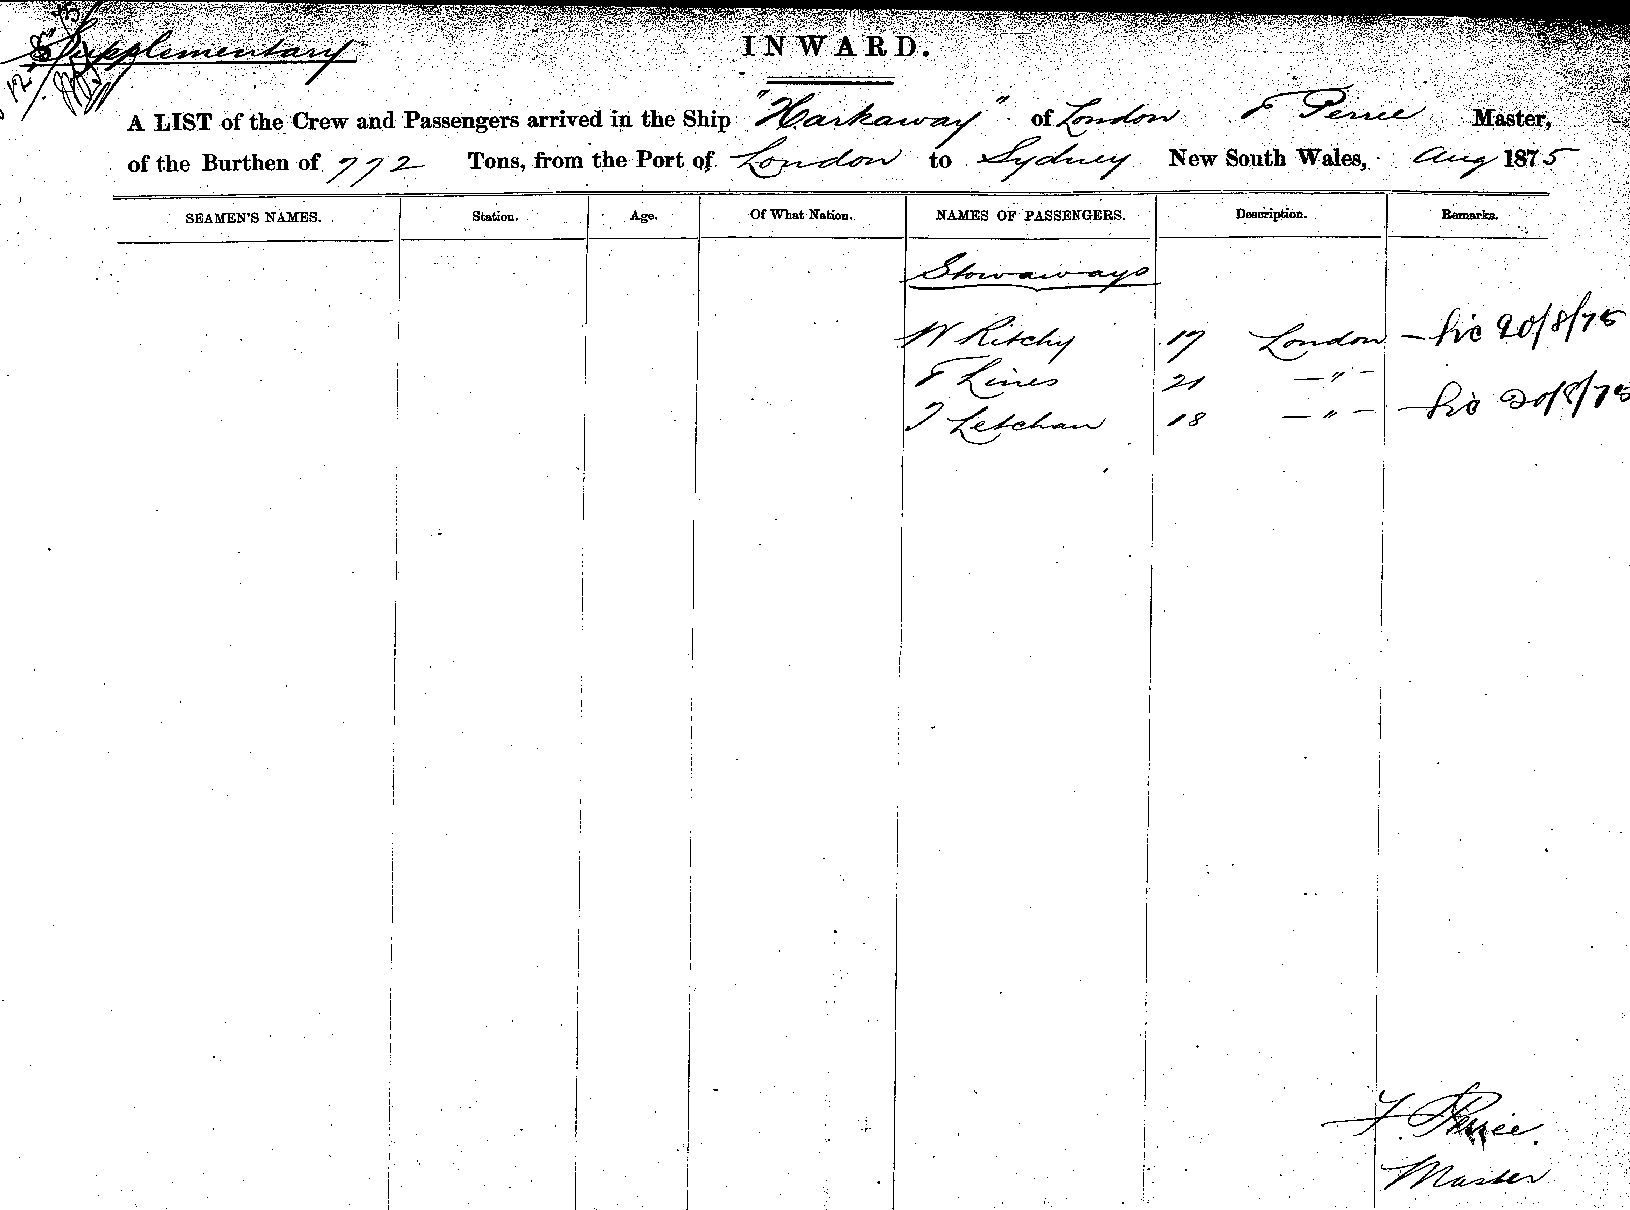 Supplementary
INWARD.
A LIST of the Crew and Passengers arrived in the Ship "Harkaway" of London F Perree Master,
of the Burthen of 772 Tons, from the Port of London to Sydney New South Wales, Aug 1875
SEAMEN'S NAMES. Station. Age. Of What Nation. NAMES OF PASSENGERS. Description. Remarks.
Stowaways
W Ritchy 17 London — 20/8/75
F Lines 21 — " —
T Letchan 18 — " — — 20/8/75
F. Perree.
Master